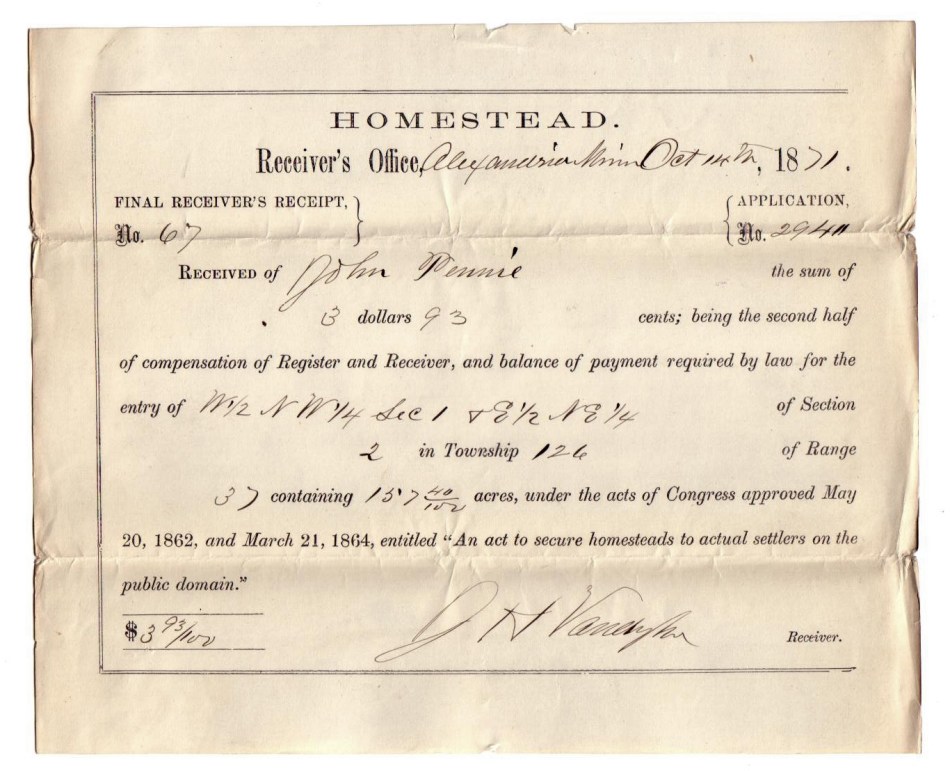 HOMESTEAD.
Receiver's Office, Alexandria Minn Oct 14th, 1871.
FINAL RECEIVER'S RECEIPT, } { APPLICATION,
No. 67 No. 294
RECEIVED of John Pennie the sum of
3 dollars 93 cents; being the second half
of compensation of Register and Receiver, and balance of payment required by law for the
entry of W1/2 NW1/4 Sec 1 & E1/2 NE1/4 of Section
2 in Township 126 of Range
37 containing 157 40/100 acres, under the acts of Congress approved May
20, 1862, and March 21, 1864, entitled "An act to secure homesteads to actual settlers on the
public domain."
$3 93/100 J H Receiver.